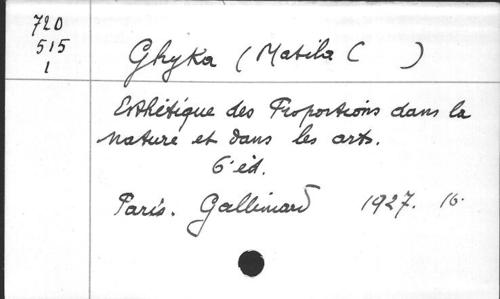 720
515
1
Ghyka (Matila C )
Esthétique des Proportions dans la
nature et dans les arts.
6 éd.
Paris. Gallimard 1927. 16.